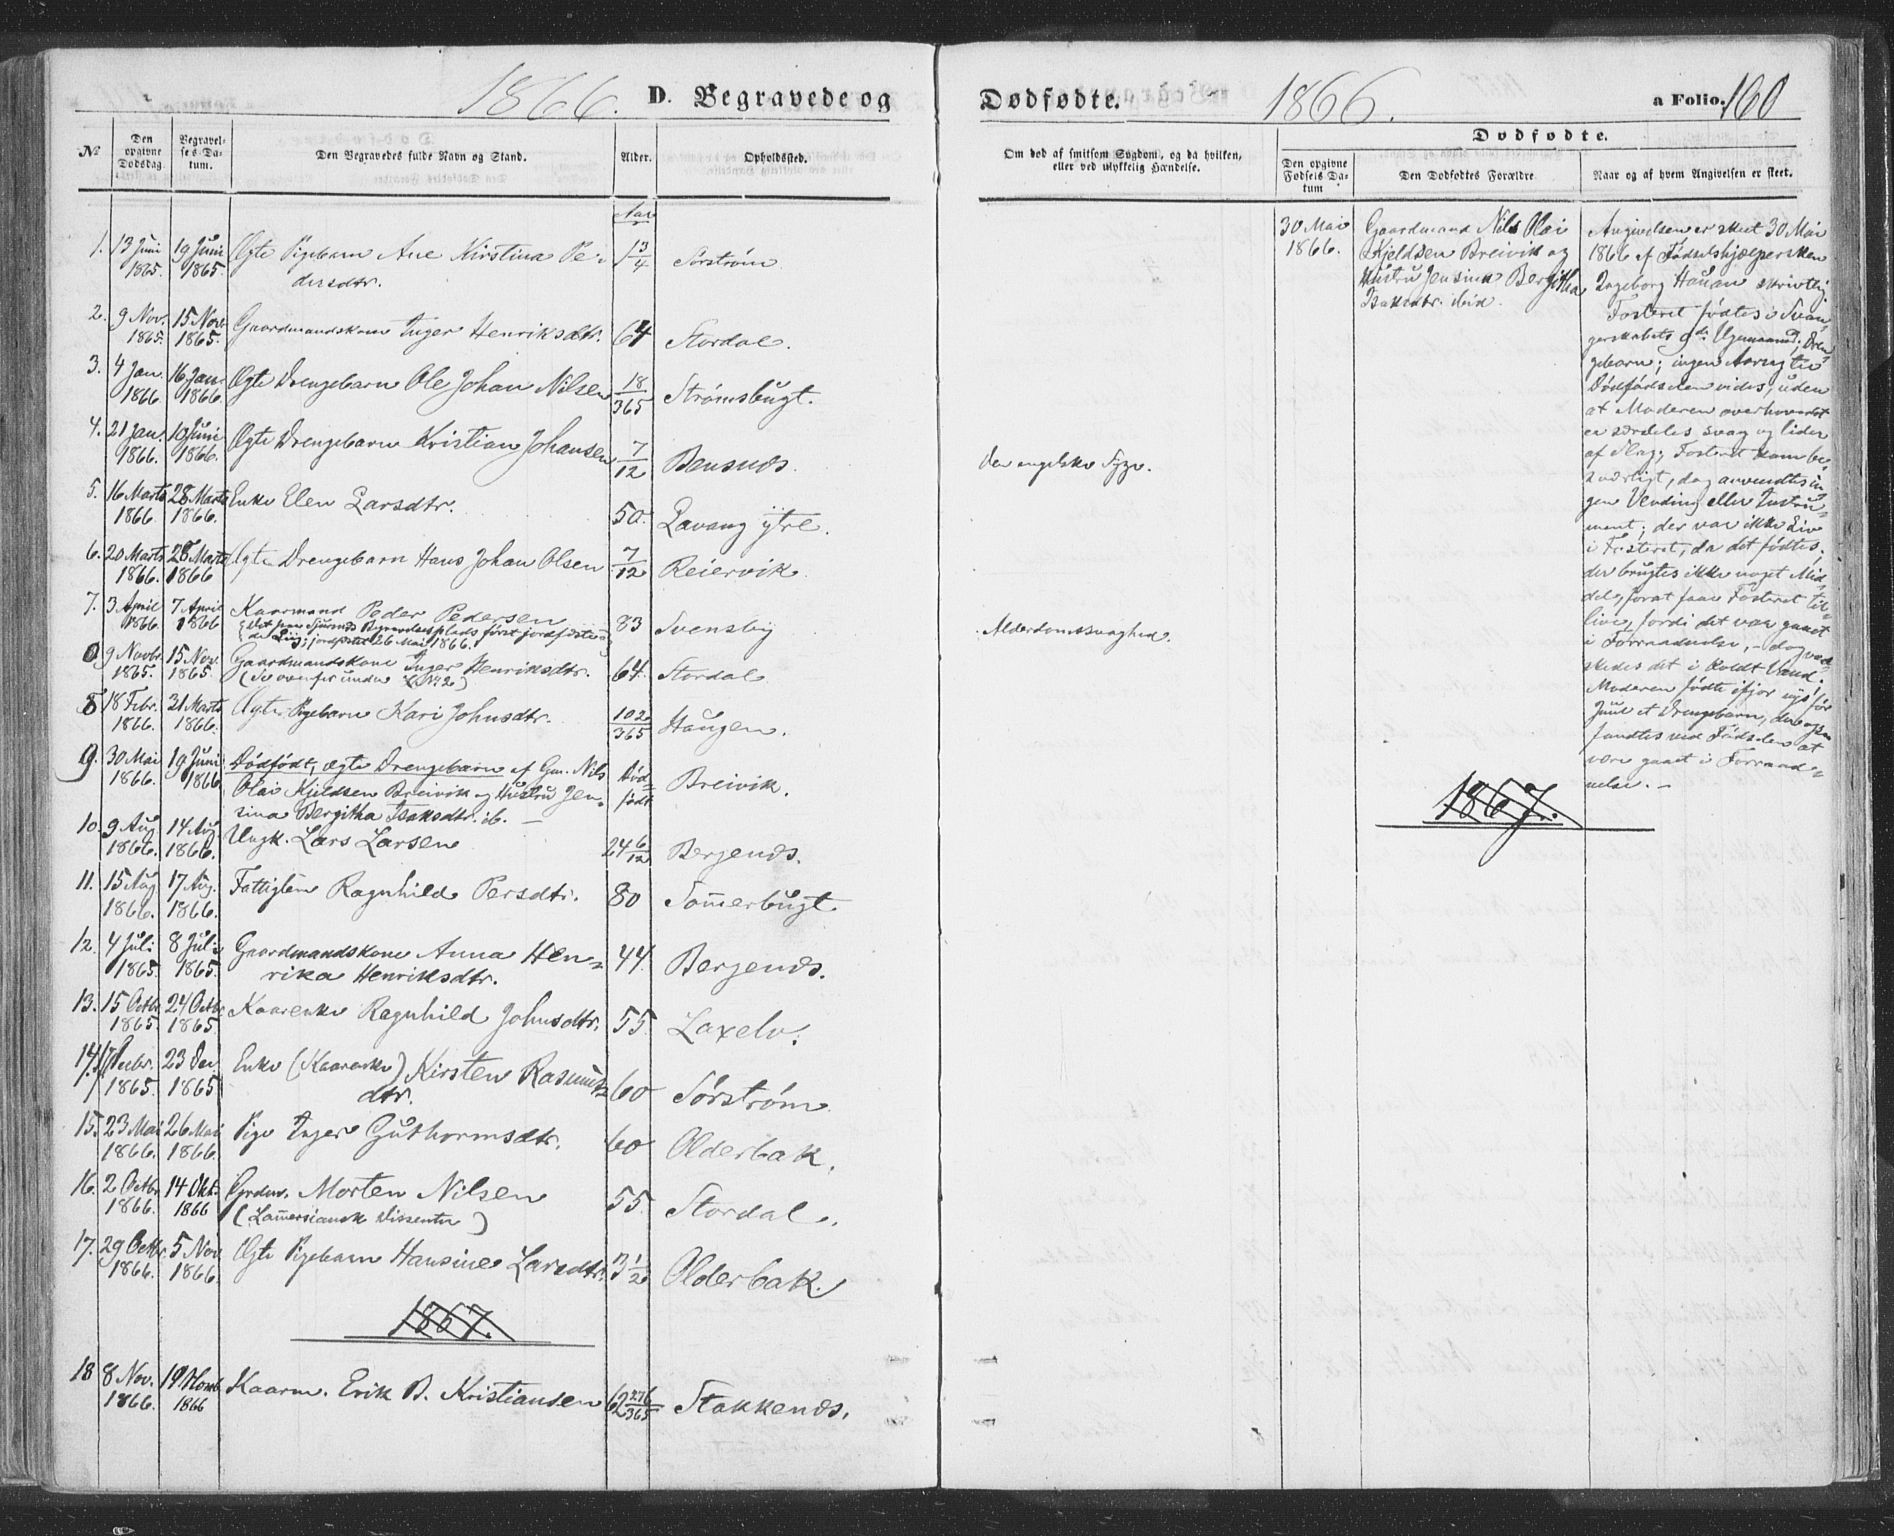 1866. D. Begravede og
№
Den opgivne Dødsdag.
Begravelses Datum.
Den Begravedes fulde Navn og Stand.
Alder.
Opholdssted.
Aar
1. 13 Juni 1865. 19 Juni 1865. Ægte Pigebarn Ane Kirstina Pe- 1 3/4 Sørstrøm
dersdtr.
2. 9 Nov. 1865. 15 Nov. 1865. Gaardmandskone Inger Henriksdtr. 64 Stordal.
3. 4 Jan. 1866 16 Jan. 1866. Ægte Drengebarn Ole Johan Nilsen 18/365 Strømsbugt.
4. 21 Jan. 1866. 10 Juni 1866. Ægte Drengebarn Kristian Johansen 7/12 Bensnæs.
5. 16 Marts 1866. 28 Marts 1866. Enke Elen Larsdtr. 50. Lavang ytre.
6. 20 Marts 1866. 28 Marts 1866 Ægte Drengebarn Hans Johan Olsen 7/12 Reiervik.
7. 3 April 1866 7 April 1866 Kaarmand Peder Pedersen 83 Svensby
1866.
9 Novbr. 1865. 15 Nov. 1865. Gaardmandskone Inger Henriksdtr. 64. Stordal
(Se ovenfor under No 2)
8 18 Febr. 1866. 31 Marts 1866. Ægte Pigebarn Kari Johnsdtr. 102/365 Haugen.
9. 30 Mai 1866. 19 Juni 1866 Dødfødt, ægte Drengebarn af Gm. Nils Død-
Olai Kjeldsen Breivik og Hustru Jen- født Breivik.
sina Bergitha Isaksdtr. ib. —
10. 9 Aug 1866. 14 Aug 1866. Ungk. Lars Larsen 24 6/12 Bergenæs.
11. 15 Aug 1866. 17 Aug. 1866. Fattiglem Ragnhild Persdtr. 80 Sommerbugt
12. 4 Juli 1865. 8 Juli 1865. Gaardmandskone Anna Hen- 44. Bergenæs.
rika Henriksdtr.
13. 15 Octbr. 1865 24 Octbr 1865 Kaarenke Ragnhild Johnsdtr. 55. Laxelv.
14. 17 Decbr. 1865 23 Dec 1865 Enke (Kaarenke) Kirsten Rasmus- 60 Sørstrøm
dtr.
15. 23 Mai 1866. 26 Mai 1866. Pige Inger Guthormsdtr. 60 Olderbak.
16. 2 Octbr 1866. 14 Okt. 1866 Grdm. Morten Nilsen 55. Stordal.
(Lammersiansk Dissenter)
17. 29 Octbr. 1866. 5 Nov. 1866. Ægte Pigebarn Hansine Larsdtr. 3 1/2 Olderbak.
1867.
18 8 Nov. 1866. 19 1866 Kaarm. Erik B. Kristiansen 62 276/365 Stakkenæs.
Dødfødte. 1866. a Folio. 160
Om død af smitsom Sygdom, og da hvilken,
eller ved ulykkelig Hændelse.
Dødfødte.
Den opgivne Fødsels Datum
Den Dødfødtes Forældre
Naar og af hvem Angivelsen er skeet.
Den engelske Syge.
Alderdomssvaghed.
30 Mai
1866.
Gaardmand Nils Olai
Kjeldsen Breivik og
Hustru Jensina Bergitha
Isaksdtr. ibid.
Angivelsen er skeet 30 Mai
1866 af Fødselshjælpersken
Ingeborg Hauan skrivtlig.
Fosteret fødtes i Svan-
gerskabets 9de Ugemaaned; Dren-
gebarn; ingen Aarsag til
Dødfødselen vides, uden
at Moderen overhovedet
er særdeles svag og lider
af Slag; Fosteret kom be-
sværligt, dog anvendtes in-
gen Vending eller Instru-
ment; der var ikke Liv
i Fosteret, da det fødtes;
der brugtes ikke noget Mid-
del, forat faae Fosteret til-
live, fordi det var gaaet
i Forraadnelse, - dog
skedes det i koldt Vand.
Moderen fødte ifjor nys før
Juul et Drengebarn, der ogsaa
fandtes ved Fødselen at
være gaaet i Forraad-
nelse. -
1867.